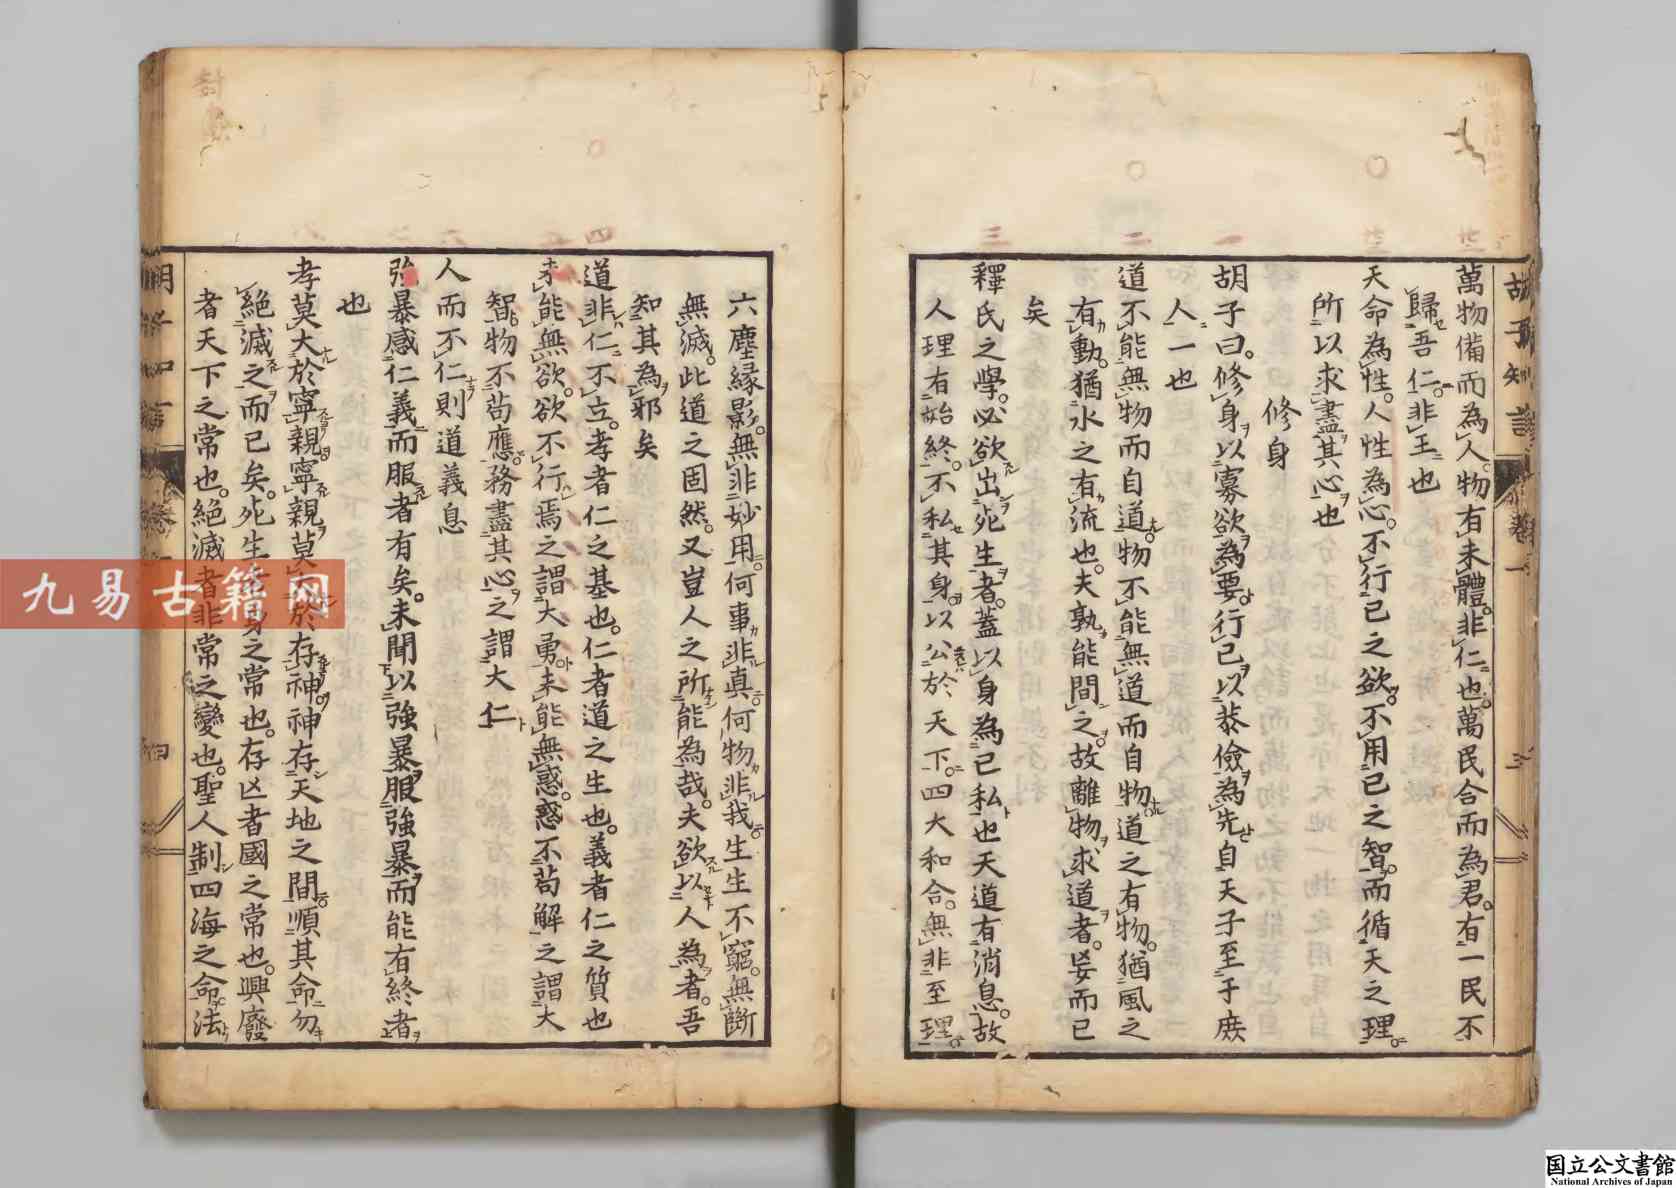 胡子知言 卷一 三
萬物備而為人物有未體非仁也萬民合而為君有一民不
歸吾仁非王也
天命為性人性為心不行己之欲不用己之智而循天之理
所以求盡其心也
修身
胡子曰修身以寡欲為要行己以恭儉為先自天子至于庶
人一也
道不能無物而自道物不能無道而自物道之有物猶風之
有動猶水之有流也夫孰能間之故離物求道者妄而已
矣
釋氏之學必欲出死生者蓋以身為己私也天道有消息故
人理有始終不私其身以公於天下四大和合無非至理
六塵縁影無非妙用何事非真何物非我生生不窮無斷
無滅此道之固然又豈人之所能為哉夫欲以人為者吾
知其為邪矣
道非仁不立孝者仁之基也仁者道之生也義者仁之質也
未能無欲欲不行焉之謂大勇未能無惑惑不苟解之謂大
智物不苟應務盡其心之謂大仁
人而不仁則道義息
強暴感仁義而服者有矣未聞以強暴服強暴而能有終者
也
孝莫大於寧親寧親莫大於存神神存天地之間順其命勿
絕滅之而已矣死生者身之常也存凶者國之常也興廢
者天下之常也絕滅者非常之變也聖人制四海之命法
九易古籍网
国立公文書館
National Archives of Japan